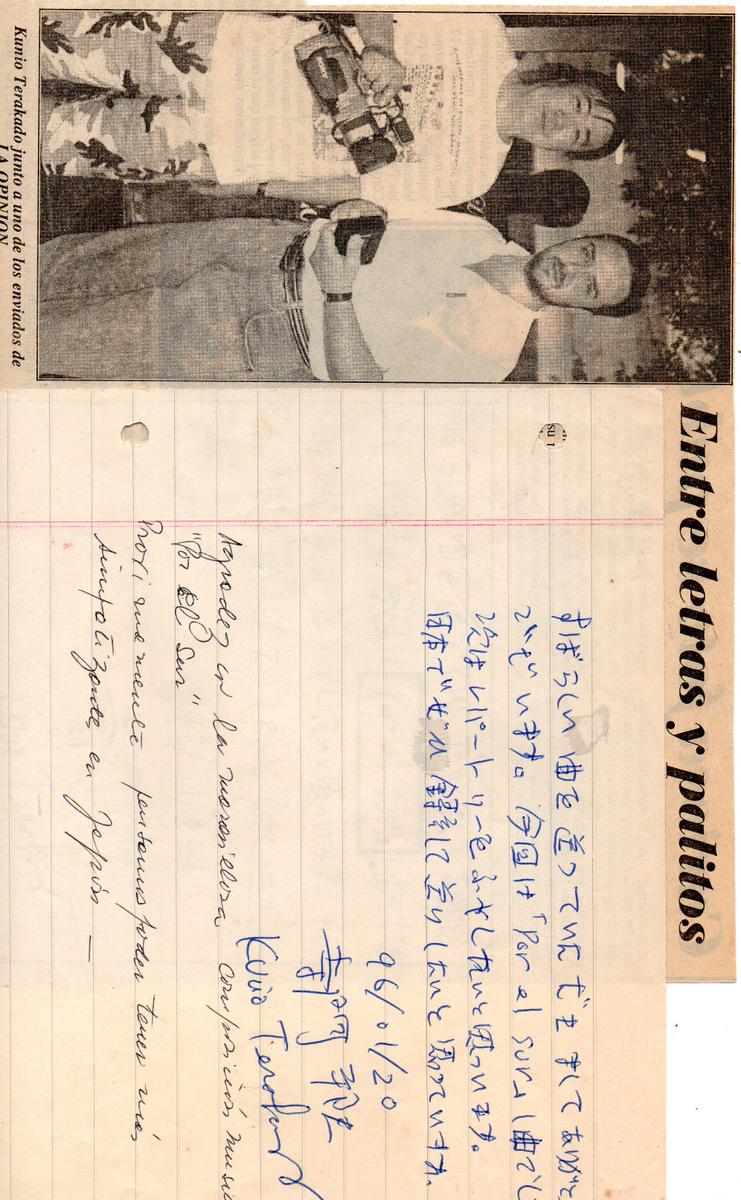 Entre letras y palitos
Kunio Terakado junto a uno de los enviados de
LA OPINION
すばらしい曲を送っていただきましてありがと
ございます。今回は「Por el sur」1曲でし
次はレパートリーをふやしたいと思っています。
日本でぜひ して送りしたいと思っています。
96/01/20
寺門
Kunio Terakado
Agradezco la maravillosa composición musi
"Por el Sur"
Proximamente pensamos poder tener más
simpatizante en Japón —